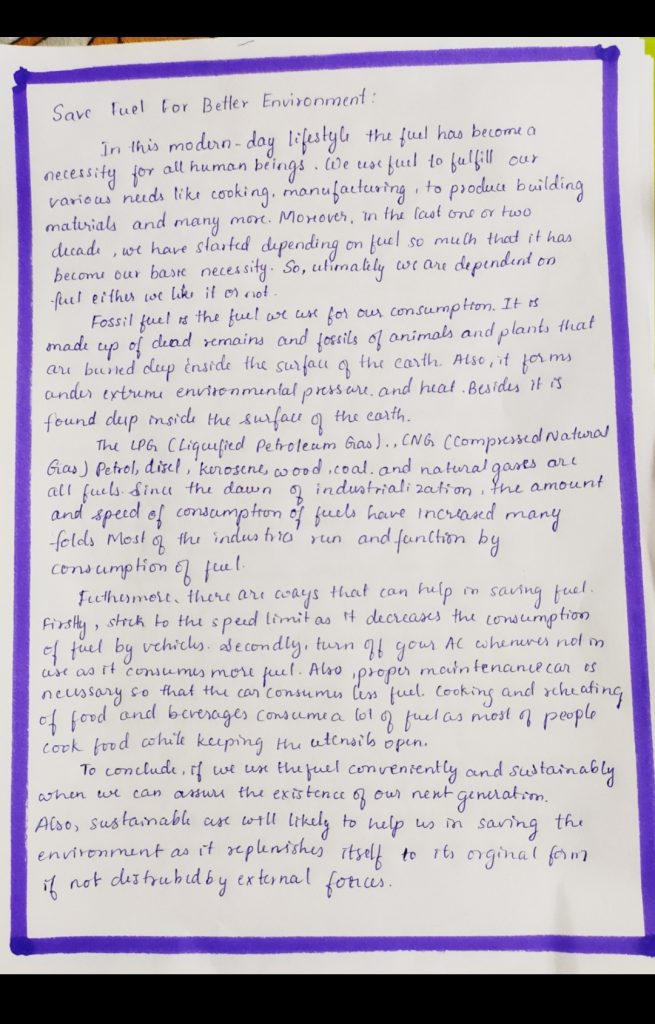 Save Fuel For Better Environment:
In this modern-day lifestyle the fuel has become a
necessity for all human beings. We use fuel to fulfill our
various needs like cooking, manufacturing, to produce building
materials and many more. Moreover, in the last one or two
decade, we have started depending on fuel so much that it has
become our basic necessity. So, utimately we are dependent on
fuel either we like it or not.
Fossil fuel is the fuel we use for our consumption. It is
made up of dead remains and fossils of animals and plants that
are buried deep inside the surface of the earth. Also, it forms
under extreme environmental pressure. and heat. Besides it is
found deep inside the surface of the earth.
The LPG (Liquified Petroleum Gas)., CNG (Compressed Natural
Gas) Petrol, disel, kerosene, wood, coal. and natural gases are
all fuels. Since the dawn of industrialization, the amount
and speed of consumption of fuels have increased many
folds Most of the industries run and function by
consumption of fuel.
Futhermore, there are ways that can help in saving fuel.
Firstly, stick to the speed limit as it decreases the consumption
of fuel by vehicles. Secondly, turn off your AC whenever not in
use as it consumes more fuel. Also, proper maintenance car is
necessary so that the car consumes less fuel. Cooking and reheating
of food and beverages consume a lot of fuel as most of people
cook food while keeping the utensils open.
To conclude, if we use the fuel conveniently and sustainably
when we can assure the existence of our next generation.
Also, sustainable use will likely to help us in saving the
environment as it replenishes itself to its orginal form
if not distrubed by external forces.